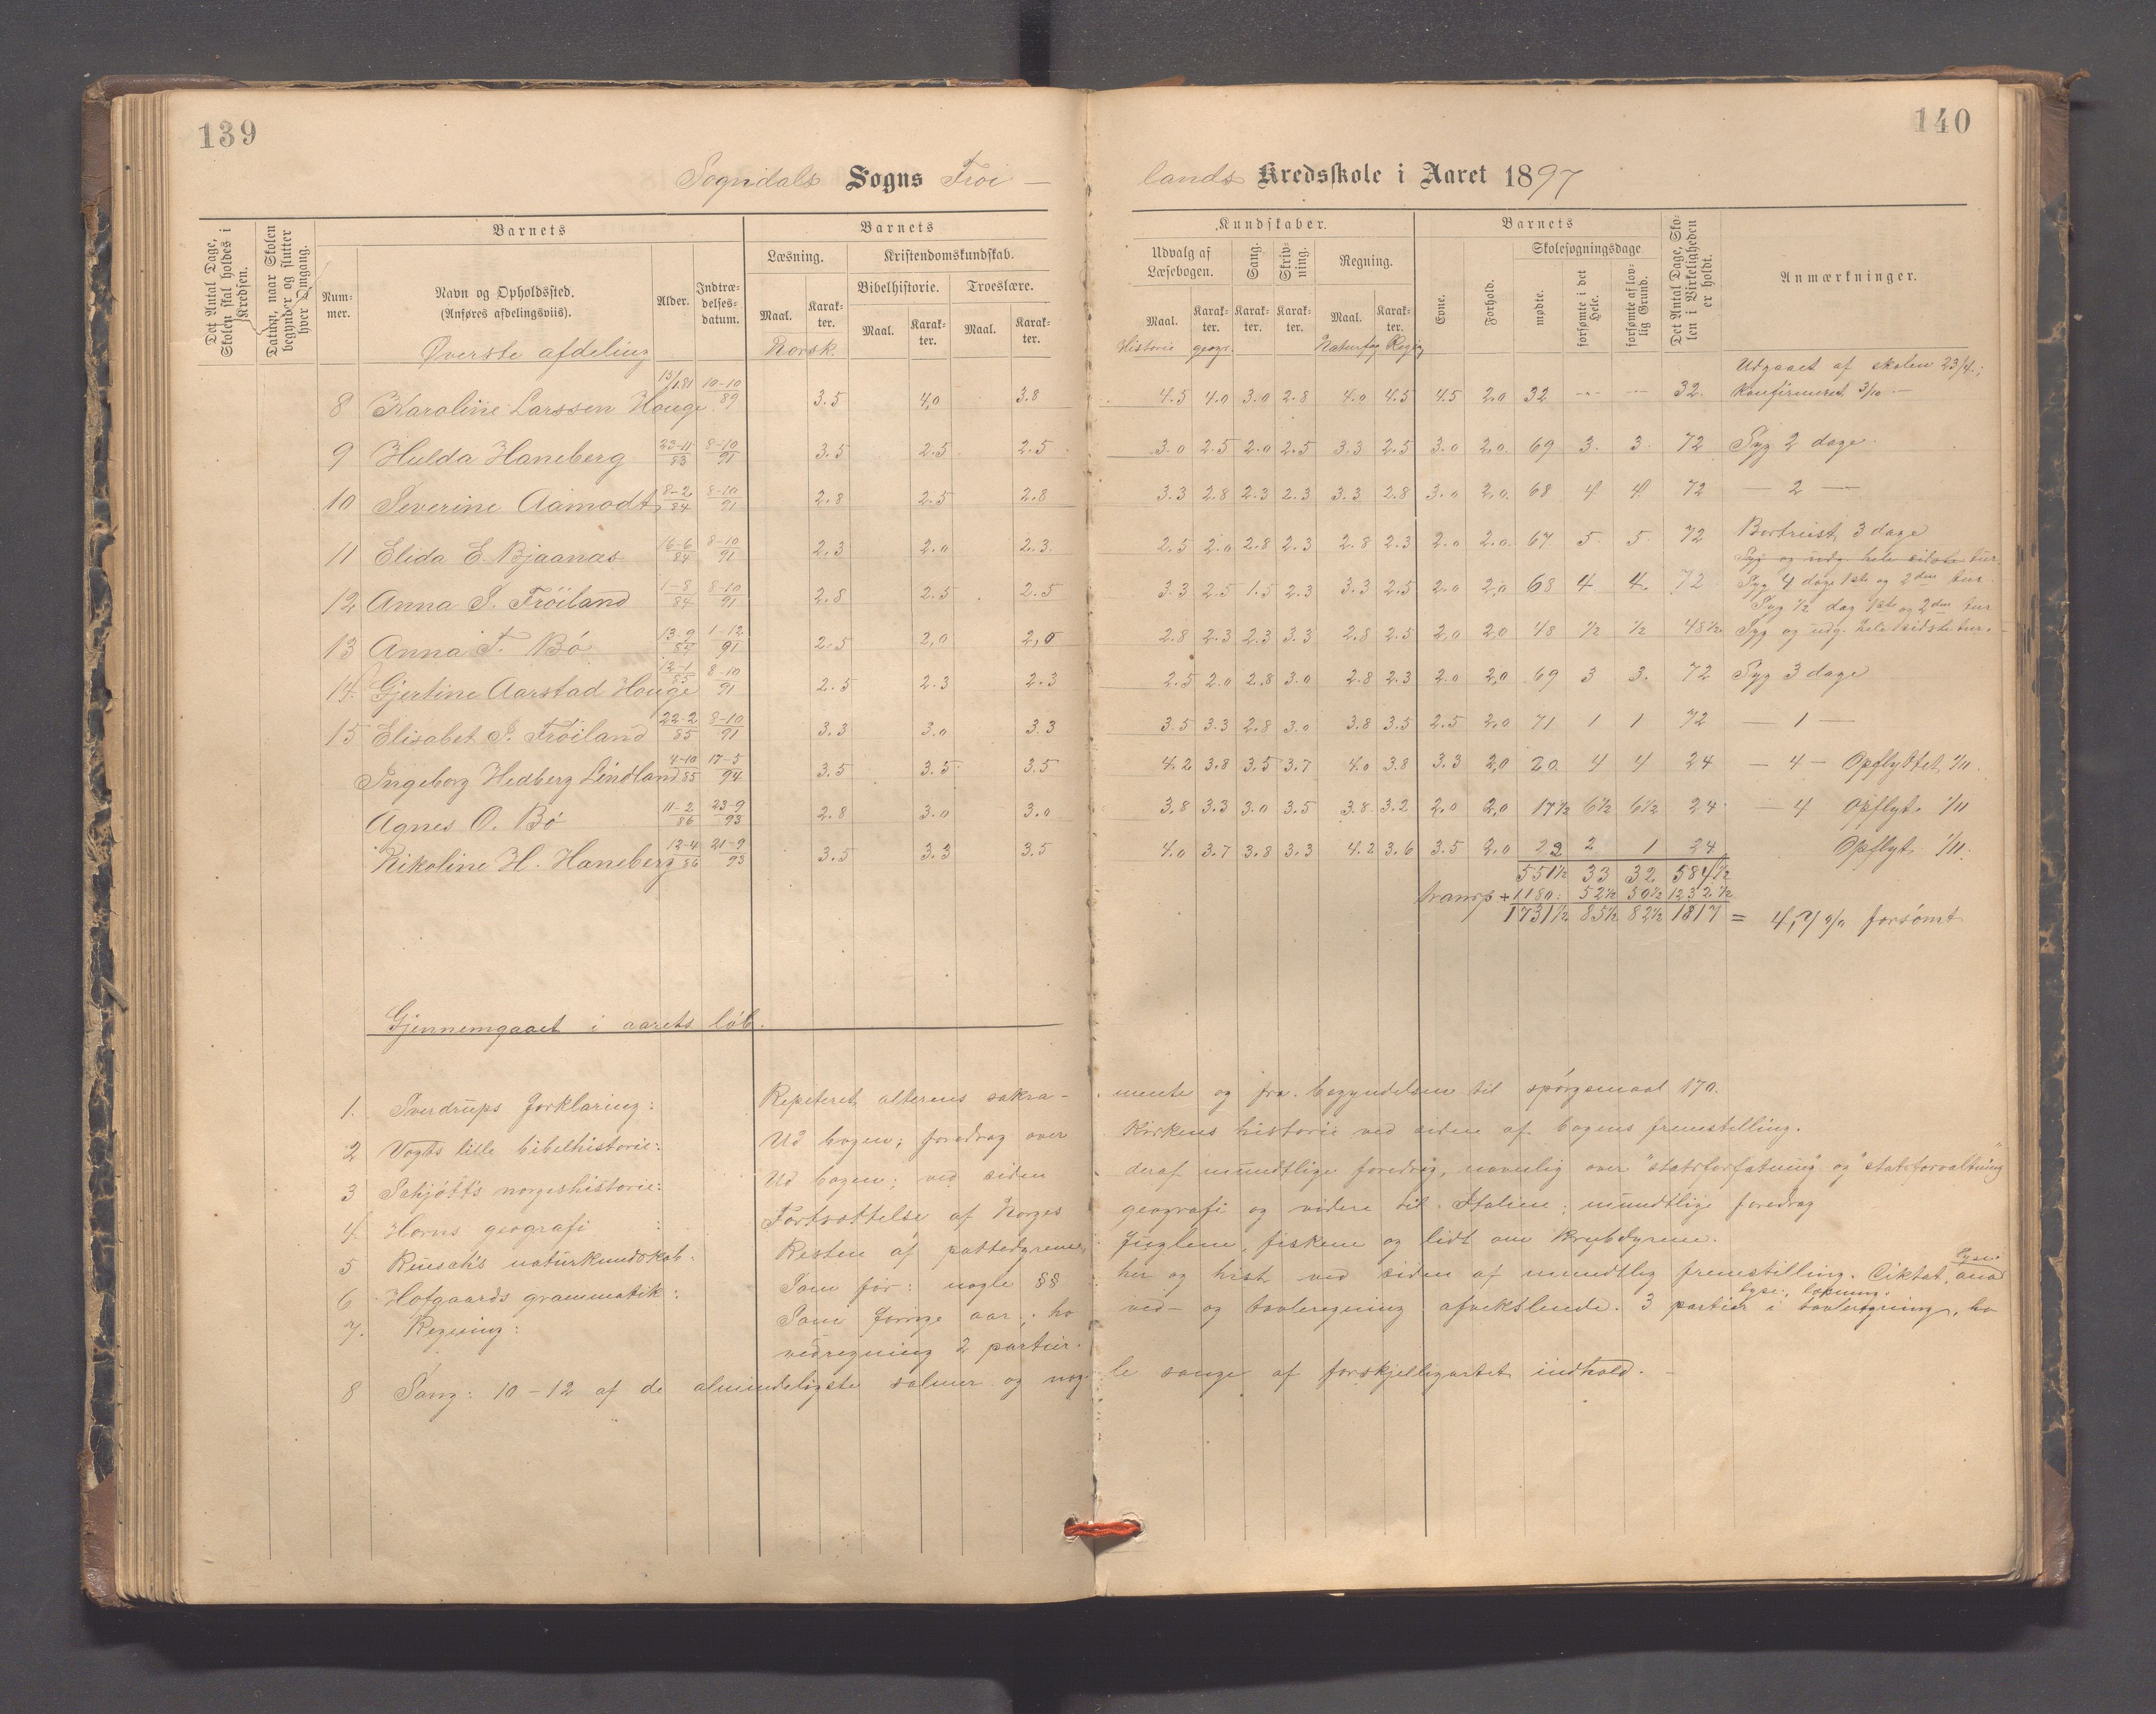 139
140
Sogndals Sogns Frøi — lands Kredsskole i Aaret 1897
Det Antal Dage, Skolen skal holdes i Kredsen.
Datum, naar Skolen begynder og slutter hver Omgang.
Barnets
Num-mer.
Navn og Opholdssted.
(Anføres afdelingsviis).
Alder.
Indtræ-delses-datum.
Barnets
Læsning.
Maal.
Karak-ter.
Kristendomskundskab.
Bibelhistorie.
Maal.
Karak-ter.
Troeslære.
Maal.
Karak-ter.
Kundskaber.
Udvalg af Læsebogen.
Maal.
Karak-ter.
Sang.
Karak-ter.
Skriv-ning.
Karak-ter.
Regning.
Maal.
Karak-ter.
Barnets
Evne.
Forhold.
Skolesøgningsdage
mødte.
forsømte i det Hele.
forsømte af lov-lig Grund.
Det Antal Dage, Sko-len i Virkeligheden er holdt.
Anmærkninger.
Øverste afdeling Norsk. Historie geogr. Naturfag Regng
8 Karoline Larssen Hauge 15/1.81 10-10/89 3.5 4,0 3.8 4.5 4.0 3.0 2.8 4.0 4.5 4.5 2.0 32 — — 32. Udgaaet af skolen 23/4.; Konfirmeret 3/10 —
9 Hulda Haneberg 23-11/83 8-10/91 3.5 2.5 2.5 3.0 2.5 2.0 2.5 3.3 2.5 3.0 2.0. 69 3. 3. 72 Syg 2 dage.
10 Severine Aamodt 8-2/84 8-10/91 2.8 2.5 2.8 3.3 2.8 2.3 2.3 3.3 2.8 3.0 2.0. 68 4 4. 72 — 2 —
11 Elida E. Bjaanæs 16-6/84 8-10/91 2.3 2.0 2.3. 2.5 2.0 2.8 2.3 2.8 2.3 2.0 2.0. 67 5. 5. 72 Bortreist 3 dage
Syg og udg. hele sidste tur
12 Anna S. Frøiland 1-8/84 8-10/91 2.8 2.5 2.5 3.3 2.5 1.5 2.3 3.3 2.5 2.0 2,0 68 4 4. 72 Syg 4 dage 1ste og 2den tur.
13 Anna T. Bø 13-9/84 1-12/91 2.5 2,0 2,0 2.8 2.3 2.3 3.3 2.8 2.5 2,0 2,0 48 ½ ½ 48½ Syg ½ dag 1ste og 2den tur
Syg og udg. hele sidste tur. -
14. Gjertine Aarstad Hauge 12-1/85 8-10/91 2.5 2.3 2.3 2.5 2.0 2.8 3.0 2.8 2.3 2.0 2,0 69 3 3. 72 Syg 3 dage
15 Elisabet S. Frøiland 22-2/85 8-10/91 3.3 3.0 3.3 3.5 3.3 2.8 3.0 3.8 3.5 2.5 2,0 71 1 1 72 — 1 —
Ingeborg Hedberg Lindland 4-10/85 17-5/94 3.5 3.5 3.5 4.2 3.8 3.5 3.7 4.0 3.8 3.3 2,0 20 4 4 24 — 4 — Opflyttet 1/11.
Agnes O. Bø 11-2/86 23-9/93 2.8 3.0 3.0 3.8 3.3 3.0 3.5 3.8 3.2 2.0 2,0 17½ 6½ 6½ 24 — 4 Opflyt. 1/11
Nikoline H. Haneberg 12-4/86 21-9/93 3.5 3.3 3.5 4.0 3.7 3.8 3.3 4.2 3.6 3.5 2.0 22 2 1 24 Opflyt. 1/11.
551½ 33 32 584½
transp + 1180: 52½ 50½ 1232½
1731½ 85½ 82½ 1817 = 4,7 % forsømt
Gjennemgaaet i aarets løb.
1. Sverdrups forklaring: Repeteret alterens sakra- mente og fra begyndelsen til spørgsmaal 170.
2 Vogts lille bibelhistorie: Ud bogen; foredrag over kirkens historie ved siden af bogens fremstilling.
3 Schjøtt's norgeshistorie: Ud bogen; ved siden deraf mundtlige foredrag, navnlig over "statsforfatning" og "statsforvaltning"
4. Horns geografi : Fortsættelse af Norges geografi og videre til Italien; mundtlige foredrag
5 Ruschs naturkundskab: Resten af pattedyrene, fuglene, fiskene og lidt om krybdyrene.
6 Hofgaards grammatik: Som før: nogle §§ her og hist ved siden af mundtlig fremstilling. Diktat,
7. Regning: Som forrige aar; ho ved- og tavleregning afvekslende. 3 partier i tavleregning, ho
vedregning 2 partier.
8 Sang: 10-12 af de almindeligste salmer og nog- le sange af forskjelligartet indhold. -